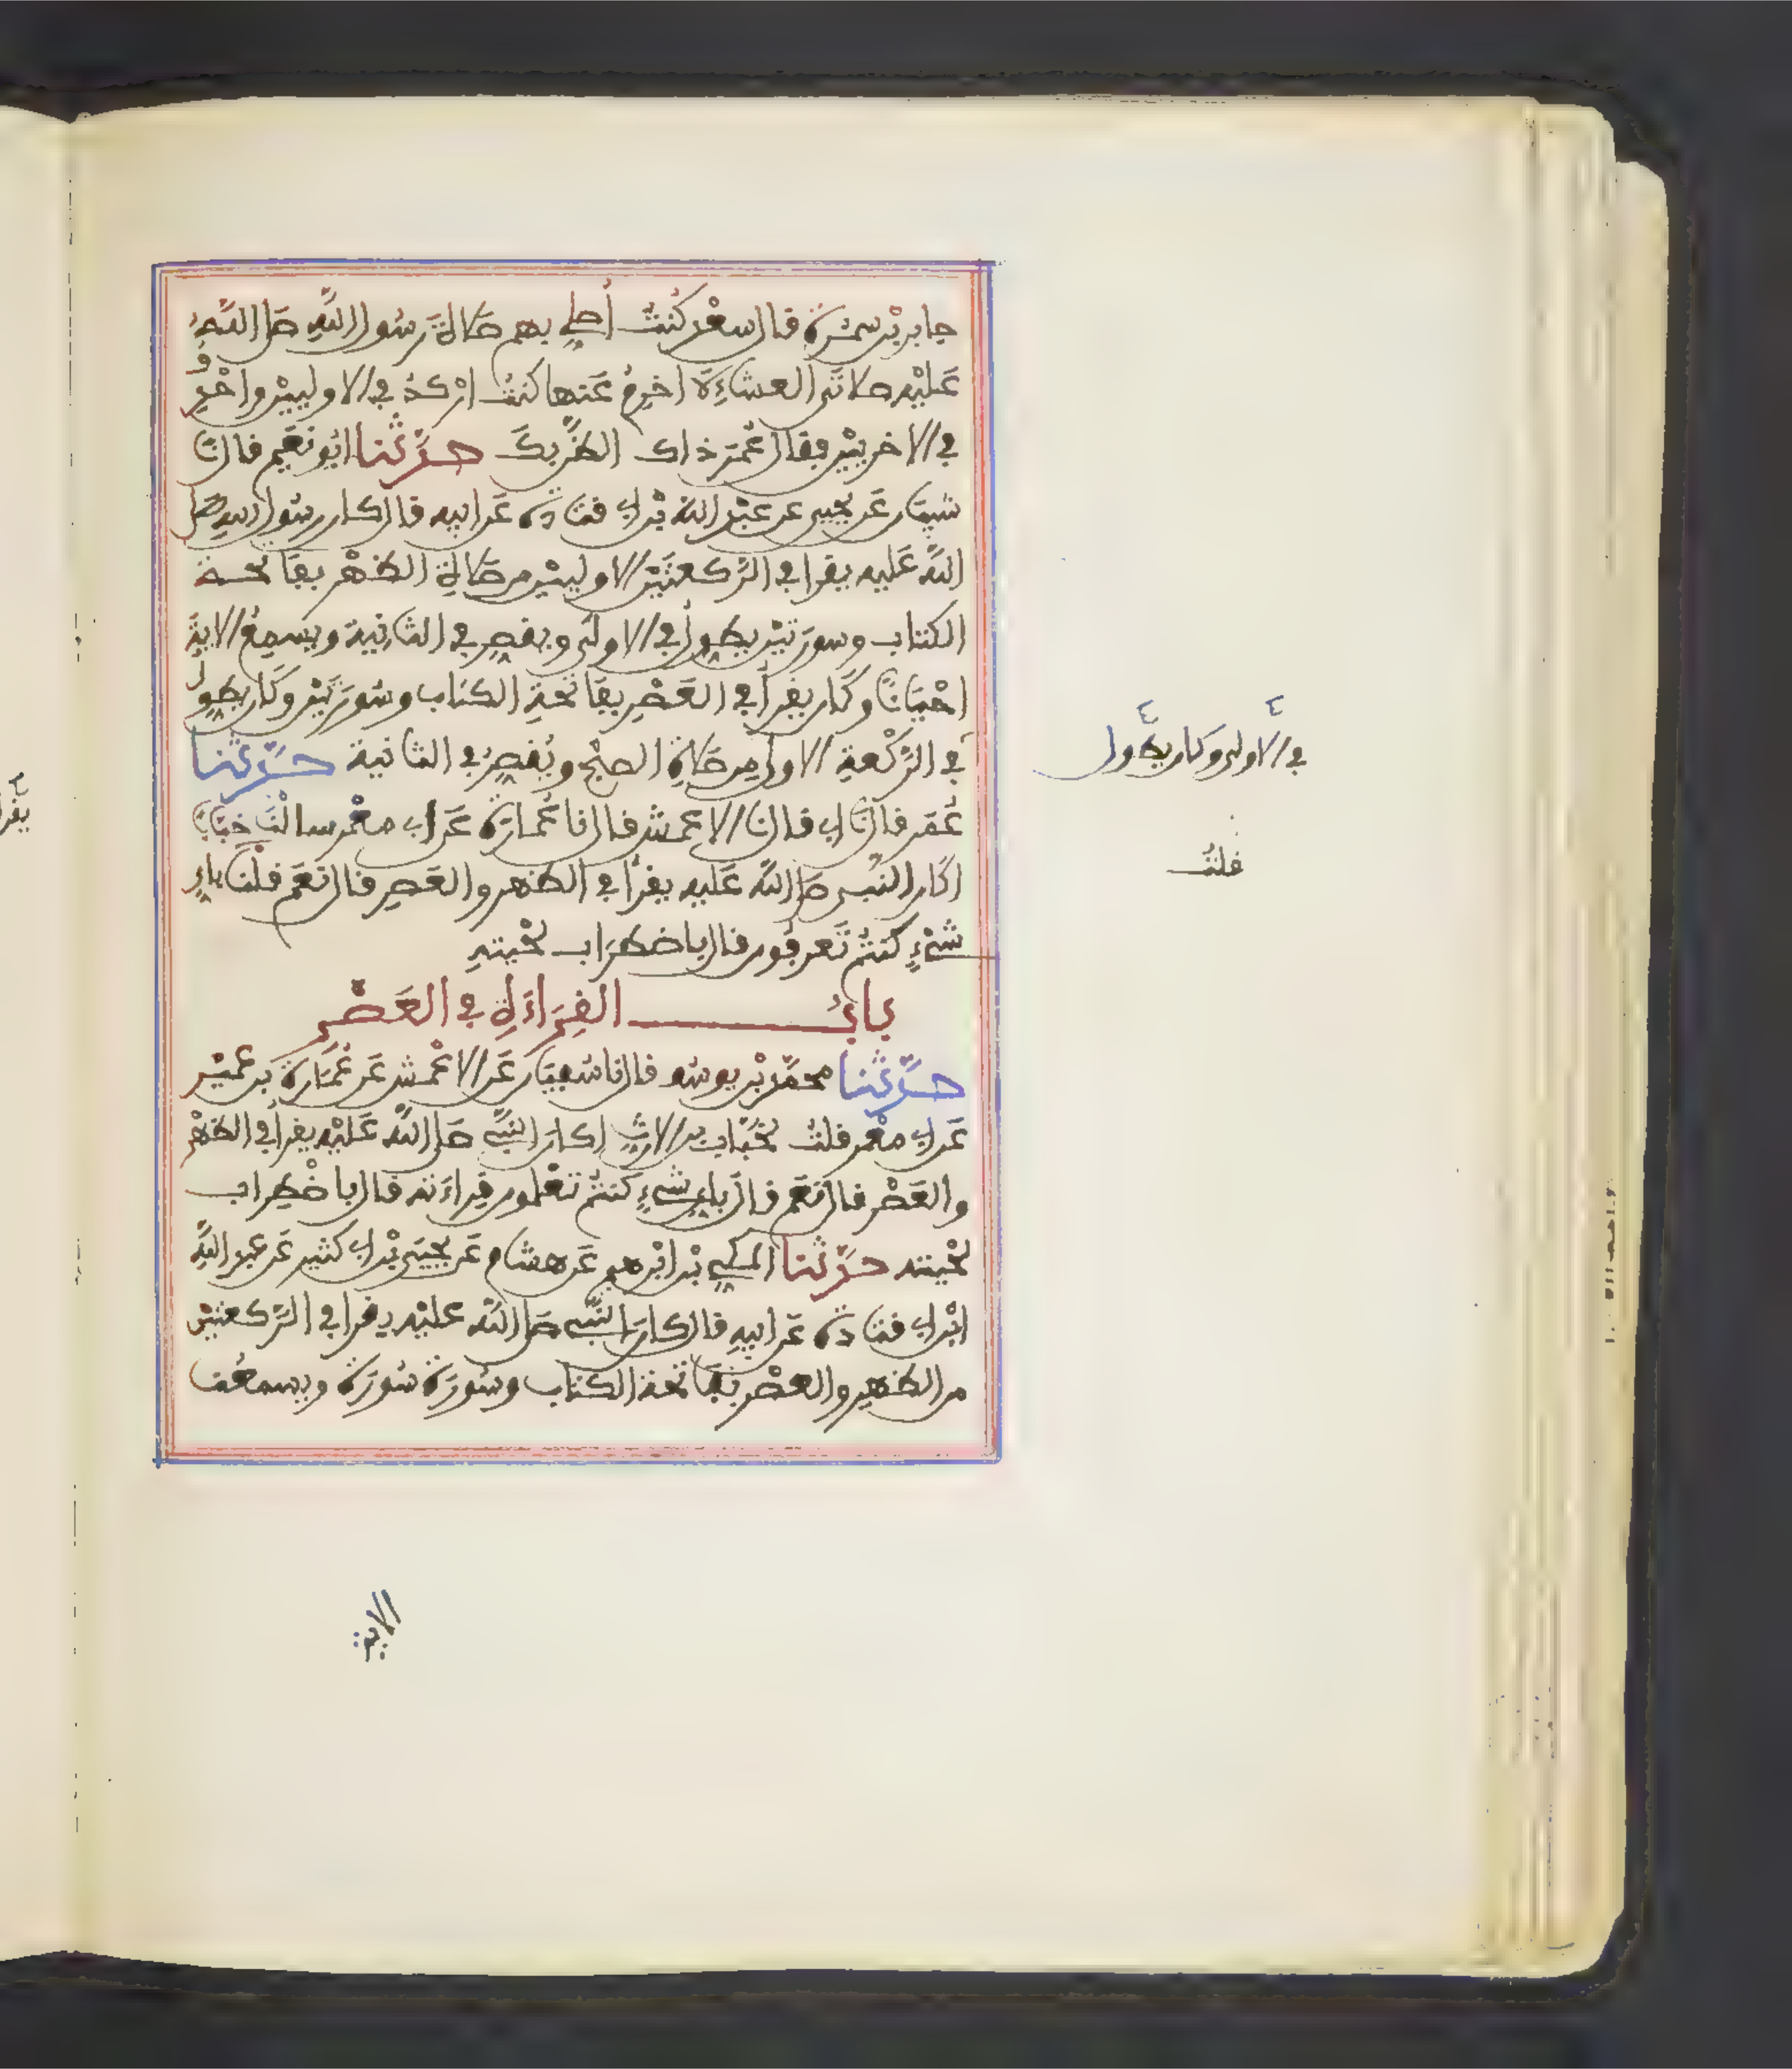 جابر بن سمرة قال سعد كنت أصلي بهم صلاة رسول الله صلى الله
عليه صلاتي العشاء لا أخرم عنها كنت اركد في الاوليين واحذف
في الاخريين فقال عمر ذاك الظن بك حدثنا ابو نعيم قال نا
شيبان عن يحيى عن عبد الله بن ابي قتادة عن ابيه قال كان رسول الله صلى
الله عليه يقرا في الركعتين الاوليين من صلاة الظهر بفاتحة
الكتاب وسورتين يطول في الاولى ويقصر في الثانية ويسمع الاية
احيانا وكان يقرأ في العصر بفاتحة الكتاب وسورتين وكان يطول
في الركعة الاولى من صلاة الصبح ويقصر في الثانية حدثنا
عمر قال نا ابي قال نا الاعمش قال نا عمارة عن ابي معمر سالنا خبابا
اكان النبي صلى الله عليه يقرأ في الظهر والعصر قال نعم قلنا باي
شيء كنتم تعرفون قال باضطراب لحيته
باب القراءة في العصر
حدثنا محمد بن يوسف قال نا سفيان عن الاعمش عن عمارة بن عمير
عن ابي معمر قلت لخباب بن الارت اكان النبي صلى الله عليه يقرأ في الظهر
والعصر قال نعم قال باي شيء كنتم تعلمون قراءته قال باضطراب
لحيته حدثنا المكي بن ابرهيم عن هشام عن يحيى بن ابي كثير عن عبد الله
ابن ابي قتادة عن ابيه قال كان النبي صلى الله عليه يقرا في الركعتين
من الظهر والعصر بفاتحة الكتاب وسورة سورة ويسمعنا
في الاولى وكان يطول
قلت
الاية